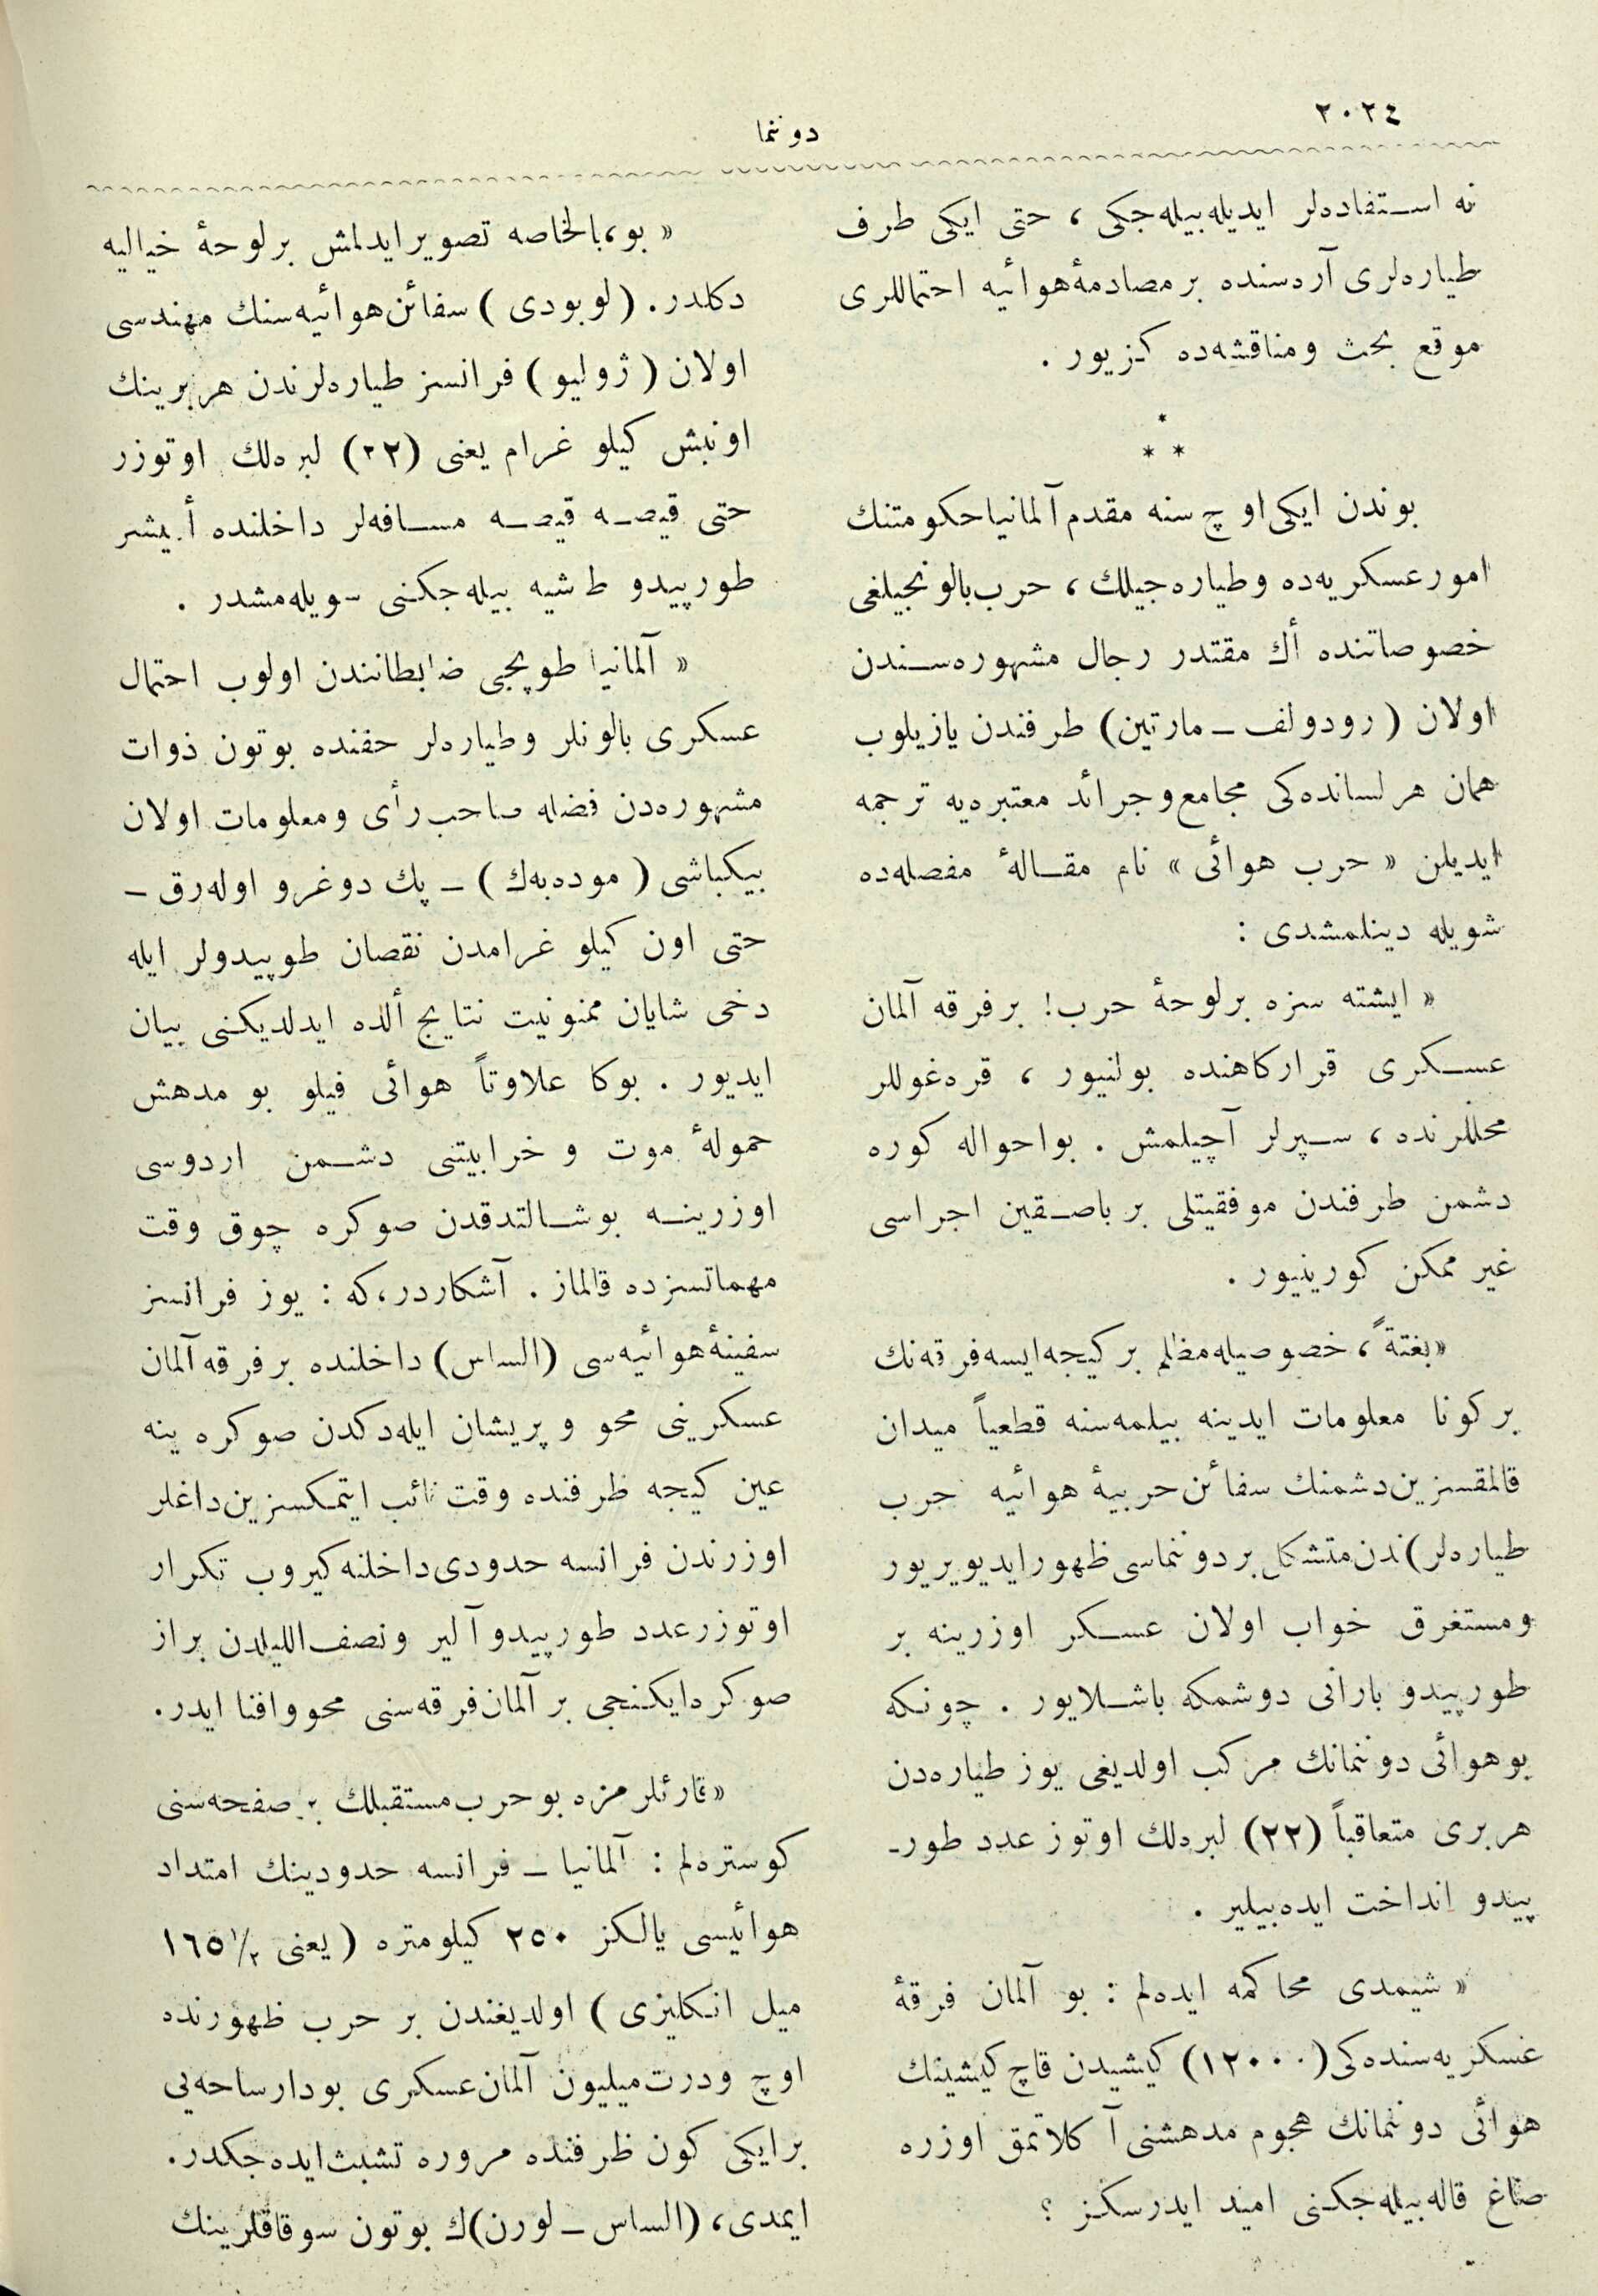 ٢٠٢٤
دوننما
نه استفاده‌لر ایدیله‌بیله‌جکی ، حتی ایکی طرف
طیاره‌لری آره‌سنده بر مصادمۀ هوائیه احتماللری
موقع بحث ومناقشه‌ده کزیور .
*
* *
بوندن ایکی اوچ سنه مقدم آلمانیا حکومتنك
امور عسکریه‌ده وطیاره جیلك ، حرب بالونجیلغی
خصوصاتنده أك مقتدر رجال مشهوره‌سندن
اولان ( رودولف ـ مارتین) طرفندن یازیلوب
همان هر لسانده‌کی مجامع وجرائد معتبره‌یه ترجمه
ایدیلن « حرب هوائی » نام مقالۀ مفصله‌ده
شویله دینلمشدی :
« ایشته سزه بر لوحۀ حرب ! بر فرقه آلمان
عسکری قرارکاهنده بولنیور ، قره‌غوللر
محللرنده ، سپرلر آچیلمش . بو احواله کوره
دشمن طرفندن موفقیتلی بر باصقین اجراسی
غیر ممکن کورینیور .
« بغتةً ، خصوصیله مظلم بر کیجه ایسه فرقه‌نك
بر کونا معلومات ایدینه بیلمه‌سنه قطعیاً میدان
قالمقسزین دشمنك سفائن حربیۀ هوائیه حرب
طیاره‌لر) ندن متشکل بر دوننماسی ظهور ایدیویریور
ومستغرق خواب اولان عسکر اوزرینه بر
طورپیدو بارانی دوشمکه باشلایور . چونکه
بو هوائی دوننمانك مرکب اولدیغی یوز طیاره‌دن
هر بری متعاقباً (٢٢) لبره‌لك اوتوز عدد طور‌ـ
پیدو انداخت ایده‌بیلیر .
« شیمدی محاکمه ایده‌لم : بو آلمان فرقۀ
عسکریه‌سنده‌کی (١٢٠٠٠) کیشیدن قاچ کیشینك
هوائی دوننمانك هجوم مدهشنی آکلاتمق اوزره
صاغ قاله‌بیله‌جکنی امید ایدرسکز ؟
« بو، بالخاصه تصویر ایدلمش بر لوحۀ خیالیه
دکلدر . (لوبودی ) سفائن هوائیه‌سنك مهندسی
اولان ( ژولیو ) فرانسز طیاره‌لرندن هر برینك
اونبش کیلو غرام یعنی (٢٢) لبره‌لك اوتوزر
حتی قیصه قیصه مسافه‌لر داخلنده أ یشر
طورپیدو طاشیه بیله‌جکنی سویله‌مشدر .
« آلمانیا طوپجی ضابطانندن اولوب احتمال
عسکری بالونلر وطیاره‌لر حقنده بوتون ذوات
مشهوره‌دن فضله صاحب رأی ومعلومات اولان
بیکباشی ( موده‌به‌ك ) ـ پك دوغرو اوله‌رق ـ
حتی اون کیلو غرامدن نقصان طوپیدولر ایله
دخی شایان ممنونیت نتایج ألده ایدلدیکنی بیان
ایدیور . بوکا علاوتاً هوائی فیلو بو مدهش
حمولۀ موت و خرابیتنی دشمن اردوسی
اوزرینه بوشالتدقدن صوکره چوق وقت
مهماتسزده قالماز . آشکاردر، که : یوز فرانسز
سفینۀ هوائیه‌سی (الساس) داخلنده بر فرقه آلمان
عسکرینی محو و پریشان ایله‌دکدن صوکره ینه
عین کیجه ظرفنده وقت غائب ایتمکسزین داغلر
اوزرندن فرانسه حدودی داخلنه کیروب تکرار
اوتوزر عدد طورپیدو آلیر ونصف اللیلدن براز
صوکره ایکنجی بر آلمان فرقه‌سنی محو وافنا ایدر.
« قارئلرمزه بو حرب مستقبلك بر صفحه‌سنی
کوستره‌لم : آلمانیا ـ فرانسه حدودینك امتداد
هوائیسی یالکز ٢٥٠ کیلومتره ( یعنی ١/٢ ١٦٥
میل انکلیزی ) اولدیغندن بر حرب ظهورنده
اوچ ودرت میلیون آلمان عسکری بو دار ساحه‌یی
بر ایکی کون ظرفنده مروره تشبث ایده‌جکدر.
ایمدی، (الساس ـ لورن)ك بوتون سوقاقلرینك